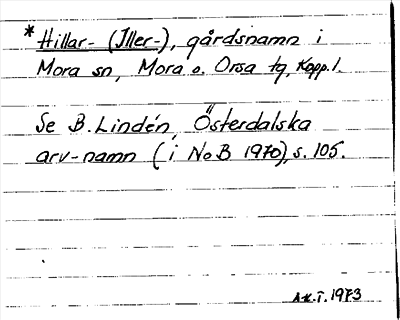 * Hillar- (Iller-), gårdsnamn i
Mora sn, Mora o. Orsa tg, Kopp. l.
Se B. Lindén, Österdalska
arv-namn (i NoB 1970), s. 105.
A.K.T. 1973